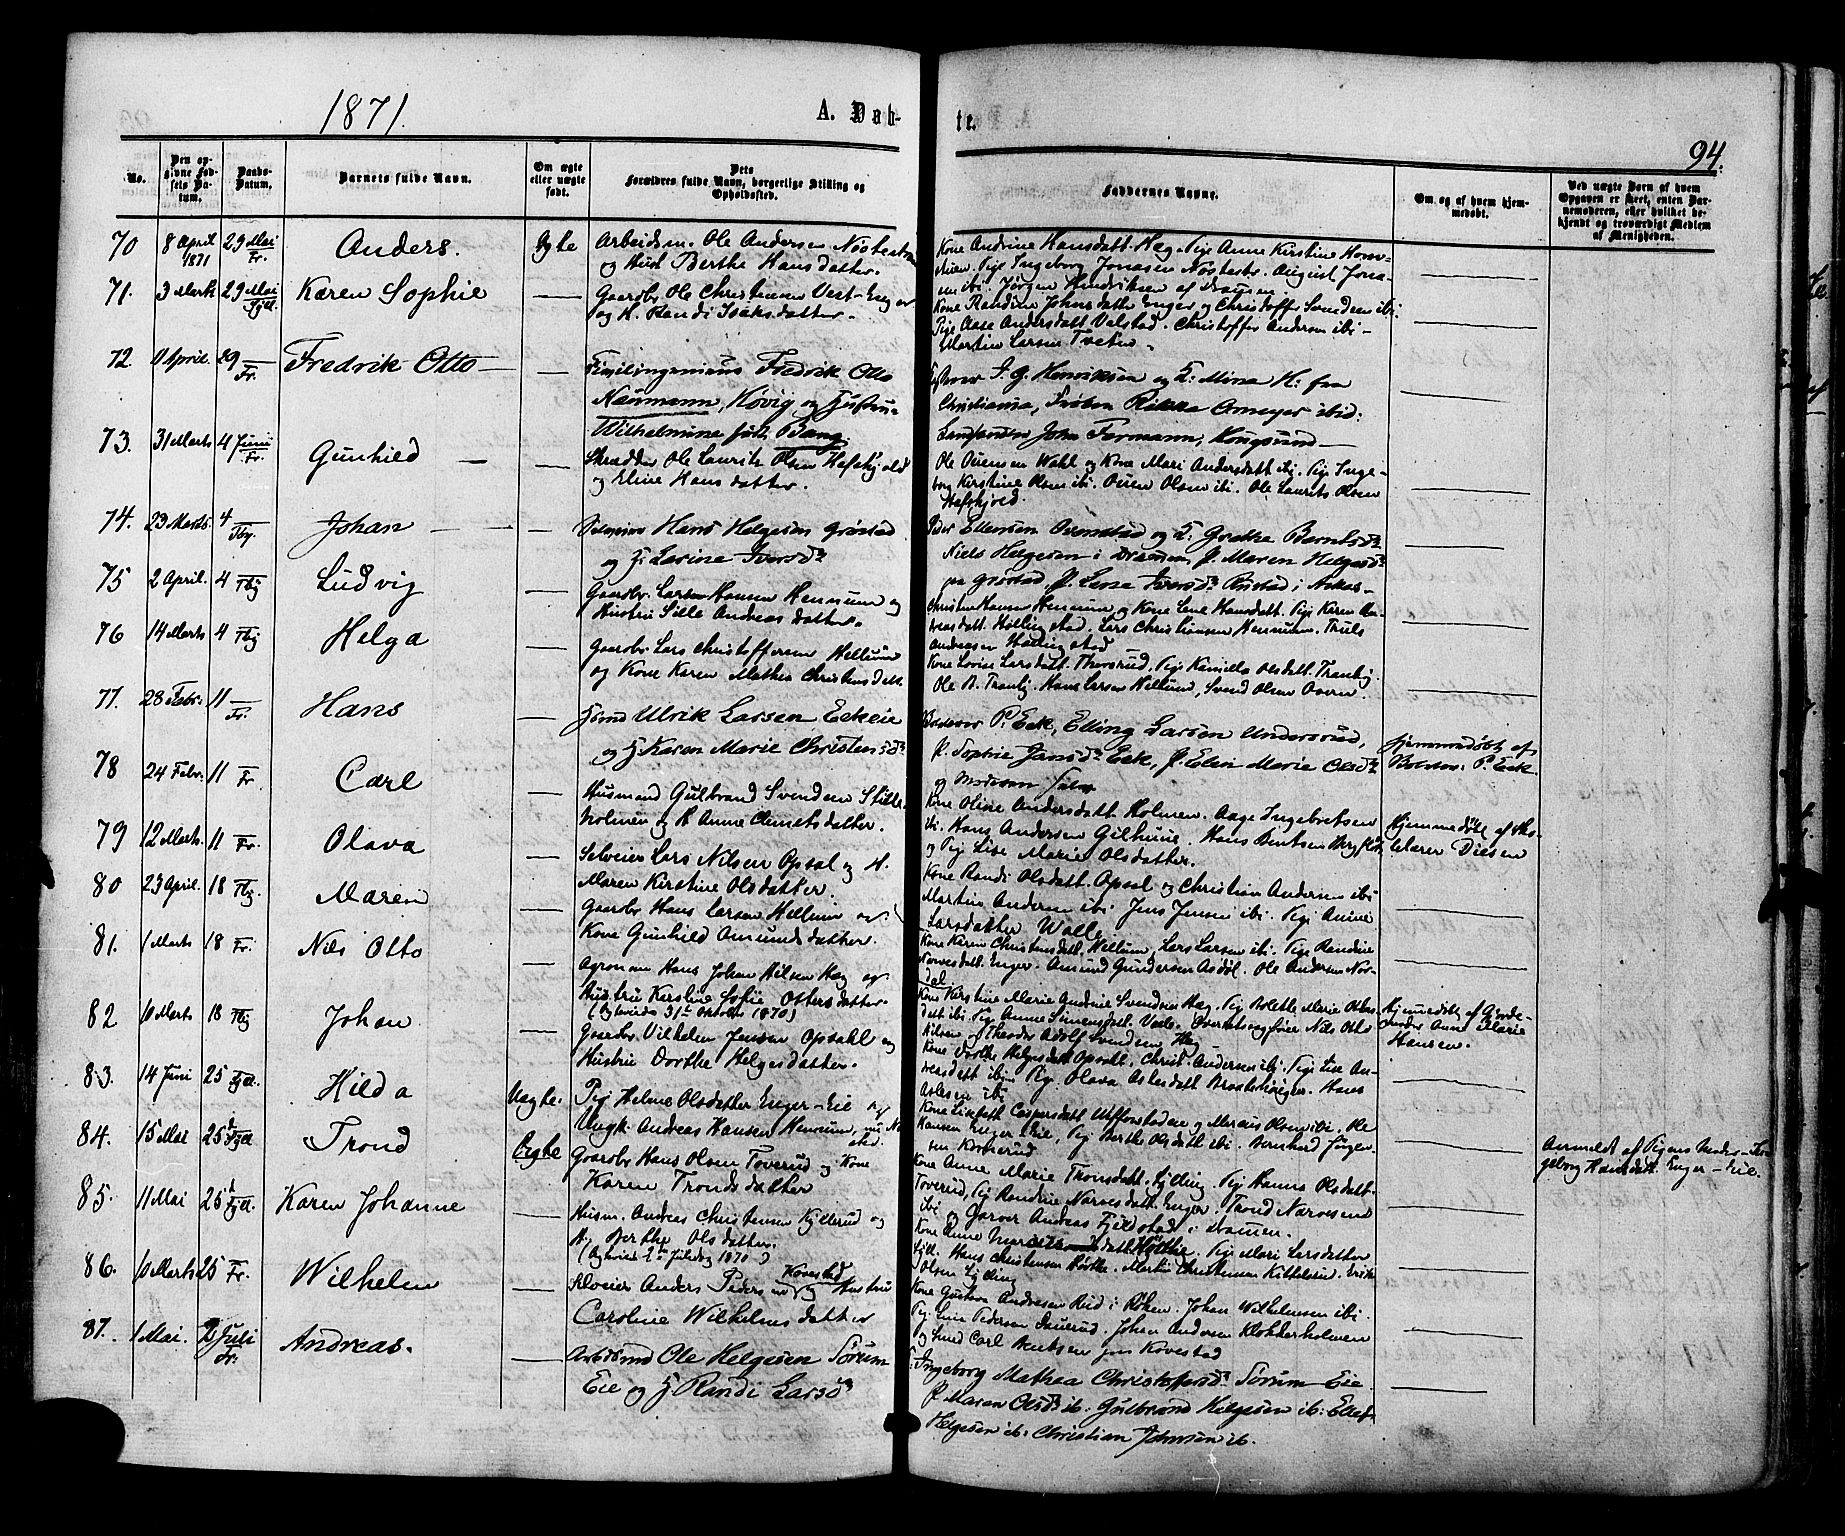 1871.
A. Døb-
te.
94.
No.
Den op-
givne Fød-
sels Da-
tum.
Daabs-
Datum.
Barnets fulde Navn.
Om ægte
eller uægte
født.
Dets
Forældres fulde Navn, borgerlige Stilling og
Opholdssted.
Faddernes Navne.
Om og af hvem hjem-
medøbt.
Ved uægte Børn af hvem
Opgaven er skeet, enten Bar-
nemoderen, eller hvilket be-
kjendt og troværdigt Medlem
af Menigheden.
70 8 April 1871 29 Mai Fr. Anders. Ægte
Arbeidsm. Ole Andersen
og Hust Berthe Hansdatter.
Kone Andrine Hansdatt. Hæg. Pige Anne Kirstine
Pige Ingeborg Jonasen August
ibi. Jørgen Hendriksen af Dramen.
71. 3 Marts 29 Mai Fjell. Karen Sophie
Gaardbr Ole Christensen Vest-Enger
og H. Randi Isaksdatter.
Kone Randine Johnsdatter Enger og Christoffer Svendsen ibi.
Pige Aase Andersdatt Valstad. Christoffer Andersen ibi
Martin Larsen Tveter
72. 1 April. 29 Fr. Fredrik Otto
Civilingeniør Fredrik Otto
Naumann, Høvig og Hustru
Wilhelmine født Bang.
J. G. Henriksen og K: Mina H: fra
Christiania, Frøken Rikka ibid:
John Formann, Kongsund
73. 31 Marts 4 Juni Fr. Gunhild
Skrædder Ole Laurits Olsen Hafskjold
og Eline Hansdatter.
Ole Ouensen Wahl og Kone Mari Andersdatt ibi. Pige Inge-
borg Kirstine Olsen ibi. Ouen Olsen ibi. Ole Laurits Olsen
Hafskjold.
74. 23 Marts 4 Tbg. Johan
Selveier Hans Helgesen Grøstad
og H. Larine Iversdr
Peder Ellensen Ovenstad og K. Grethe Berntsdr
Niels Helgesen i Drammen, P. Maren Helgesdr
paa Grøstad, P. Lene Iversdr i Asker
75 2 April. 4 Tbg Ludvig
Gaardbr. Lars Hansen Hennum og
Hustru Sille Andreasdatter.
Christen Hansen Hennum og Kone Lene Hansdatt. Pige Karen An-
dreasdatt. Hellingstad. Lars Christiansen Hennum. Truls
Andreasen Hellingstad
76 14 Marts 4 Tbg Helga
Gaardbr Lars Christoffersen Hellum
og Kone Karen Mathea Christensdatt.
Kone Lovise Larsdatt. Thorsrud, Pige Kamilla Olsdatt. Tranby.
Ole B. Tranby. Hans Larsen Hellum, Svend Olsen Oseren.
77. 28 Febr. 11 Fr. Hans
Husmd Ulrik Larsen Eckeie
og H. Karen Marie Christensdr
P. Eck, Elling Larsen Undersrud,
P. Sophie Jansdr Eck, P. Elen Marie Olsdr
og Moderen selv
Hjemmedøbt af
P. Eck.
78 24 Febr. 11 Fr Carl
Husmand Gulbrand Svendsen Stille-
holmen og H Anne Clemetsdatter.
Kone Oline Andersdatt Holmen. Aage Ingebretsen
ibi. Hans Andersen Gilhuus. Hans Bentsen
og Pige Lise Marie Olsdatter.
Hjemmedøbt af
Diesen
79 12 Marts. 11 Fr. Olava
Selveier Lars Nilsen Opsal og H.
Maren Kirstine Olsdatter.
Kone Randi Olsdatt. Opsal og Christian Andersen ibi
Martin Andersen ibi Jens Jensen ibi. Pige Anine
Larsdatter Wolle
80 23 April. 18 Tbg. Maren
Gaardbr Hans Larsen Hellum og
Kone Gunhild Amundsdatter.
Kone Karen Christensdatt Hellum, Lars Larsen ibi. Pige Randine
Narvesdatt. Enger. Amund Gundersen Asdøl. Ole Andersen Nor-
dal
81. 1 Marts 18 Fr. Nils Otto
Agronom Hans Johan Nilsen Hæg og
Hustru Kirstine Sofie Ottersdatter.
(Ægteviede 31te Oktober 1870)
Kone Kirstine Marie Andrine Svendsen Hæg. Pige Bolette Marie Otters-
datt ibi. Pige Anne Simensdatt. Nils Otto
Nilsen og Theodor Adolf Svendsen Hæg
Hjemmedøbt af Gjorde-
moder Anne Marie
Hansen.
82 10 Marts 18 Tbg Johan
Gaardbr. Vilhelm Jensen Opsahl og
Hustru Dorthe Helgesdatter.
Kone Dorthe Helgesdatt Opsahl, Christ. Andersen ibi. Pige Lise An-
dersdatt ibi. Pige Olava Hans
Aslesen ibi
83. 14 Juni 25 Fjell. Hilda Uægte.
Pige Helene Olsdatter Enger-Eie og
Ungk. Andreas Hansen Hennum, nu
Kone Lisbeth Caspersdatt og Marius Olsen ibi. Ole
Hansen Enger Eie, Pige Berthe Olsdatt ibi. Bernhard Jørgen-
sen
Anmeldt af Pigens Moder In-
geborg Hansdatt. Enger-Eie.
84. 15 Mai 25de Fjell. Trond Ægte
Gaardbr Hans Olsen Toverud og Kone
Karen Trondsdatter
Kone Anne Marie Tronsdatt. Gylling. Pige Hanna Olsdatt.
Toverud, Pige Randine Narvesdatt. Enger. Trond Narvesen
ibi og Garver Andreas Fjeldstad i Dramen.
85. 11 Mai 25de Fjell. Karen Johanne
Husm. Andreas Christensen Kyllerud og
H. Berthe Olsdatter.
(Ægteviede 2den Juledag 1870)
Kone Anne Marie Pige Mari Larsdatter
Hans Christensen Martin Christensen Kittelsrud. Erik
Olsen Gylling
86. 10 Marts 25 Fr. Wilhelm
Selveier Anders Pedersen Kovestad og Hustru
Caroline Wilhelmsdatter
Kone Gustava Andresen Rud i Røken. Johan Wilhelmsen ibi.
Pige Lene Pedersen Johan Andersen Klokkerholmen
og Smed Carl Bentsen fra Kovestad
87. 1 Mai. 2 Juli Fr. Andreas.
Arbdsmd Ole Helgesen Sørum
Eie og H Randi Larsdr
Ingeborg Mathea Christoffersdr Sørum Eie.
P. Maren Olsdr ib. Gulbrand Helgesen ib: Ellef
Helgesen ib: Christian Johnsen ib.